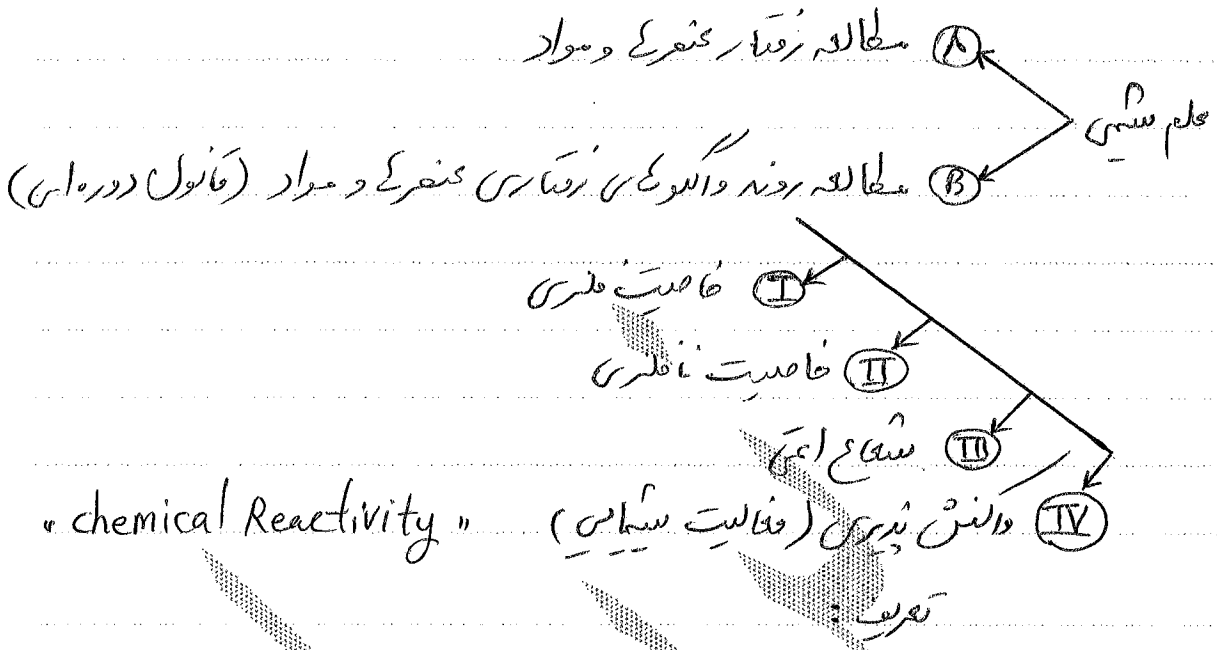 Ⓐ مطالعه رفتار عنصرها و مواد
علم شیمی
Ⓑ مطالعه روند و الگوهای رفتاری عنصرها و مواد (قانون دوره‌ای)
Ⓘ خاصیت فلزی
Ⅱ خاصیت نافلزی
Ⅲ شعاع اتمی
Ⅳ واکنش پذیری (فعالیت شیمیایی) "chemical Reactivity"
تعریف: